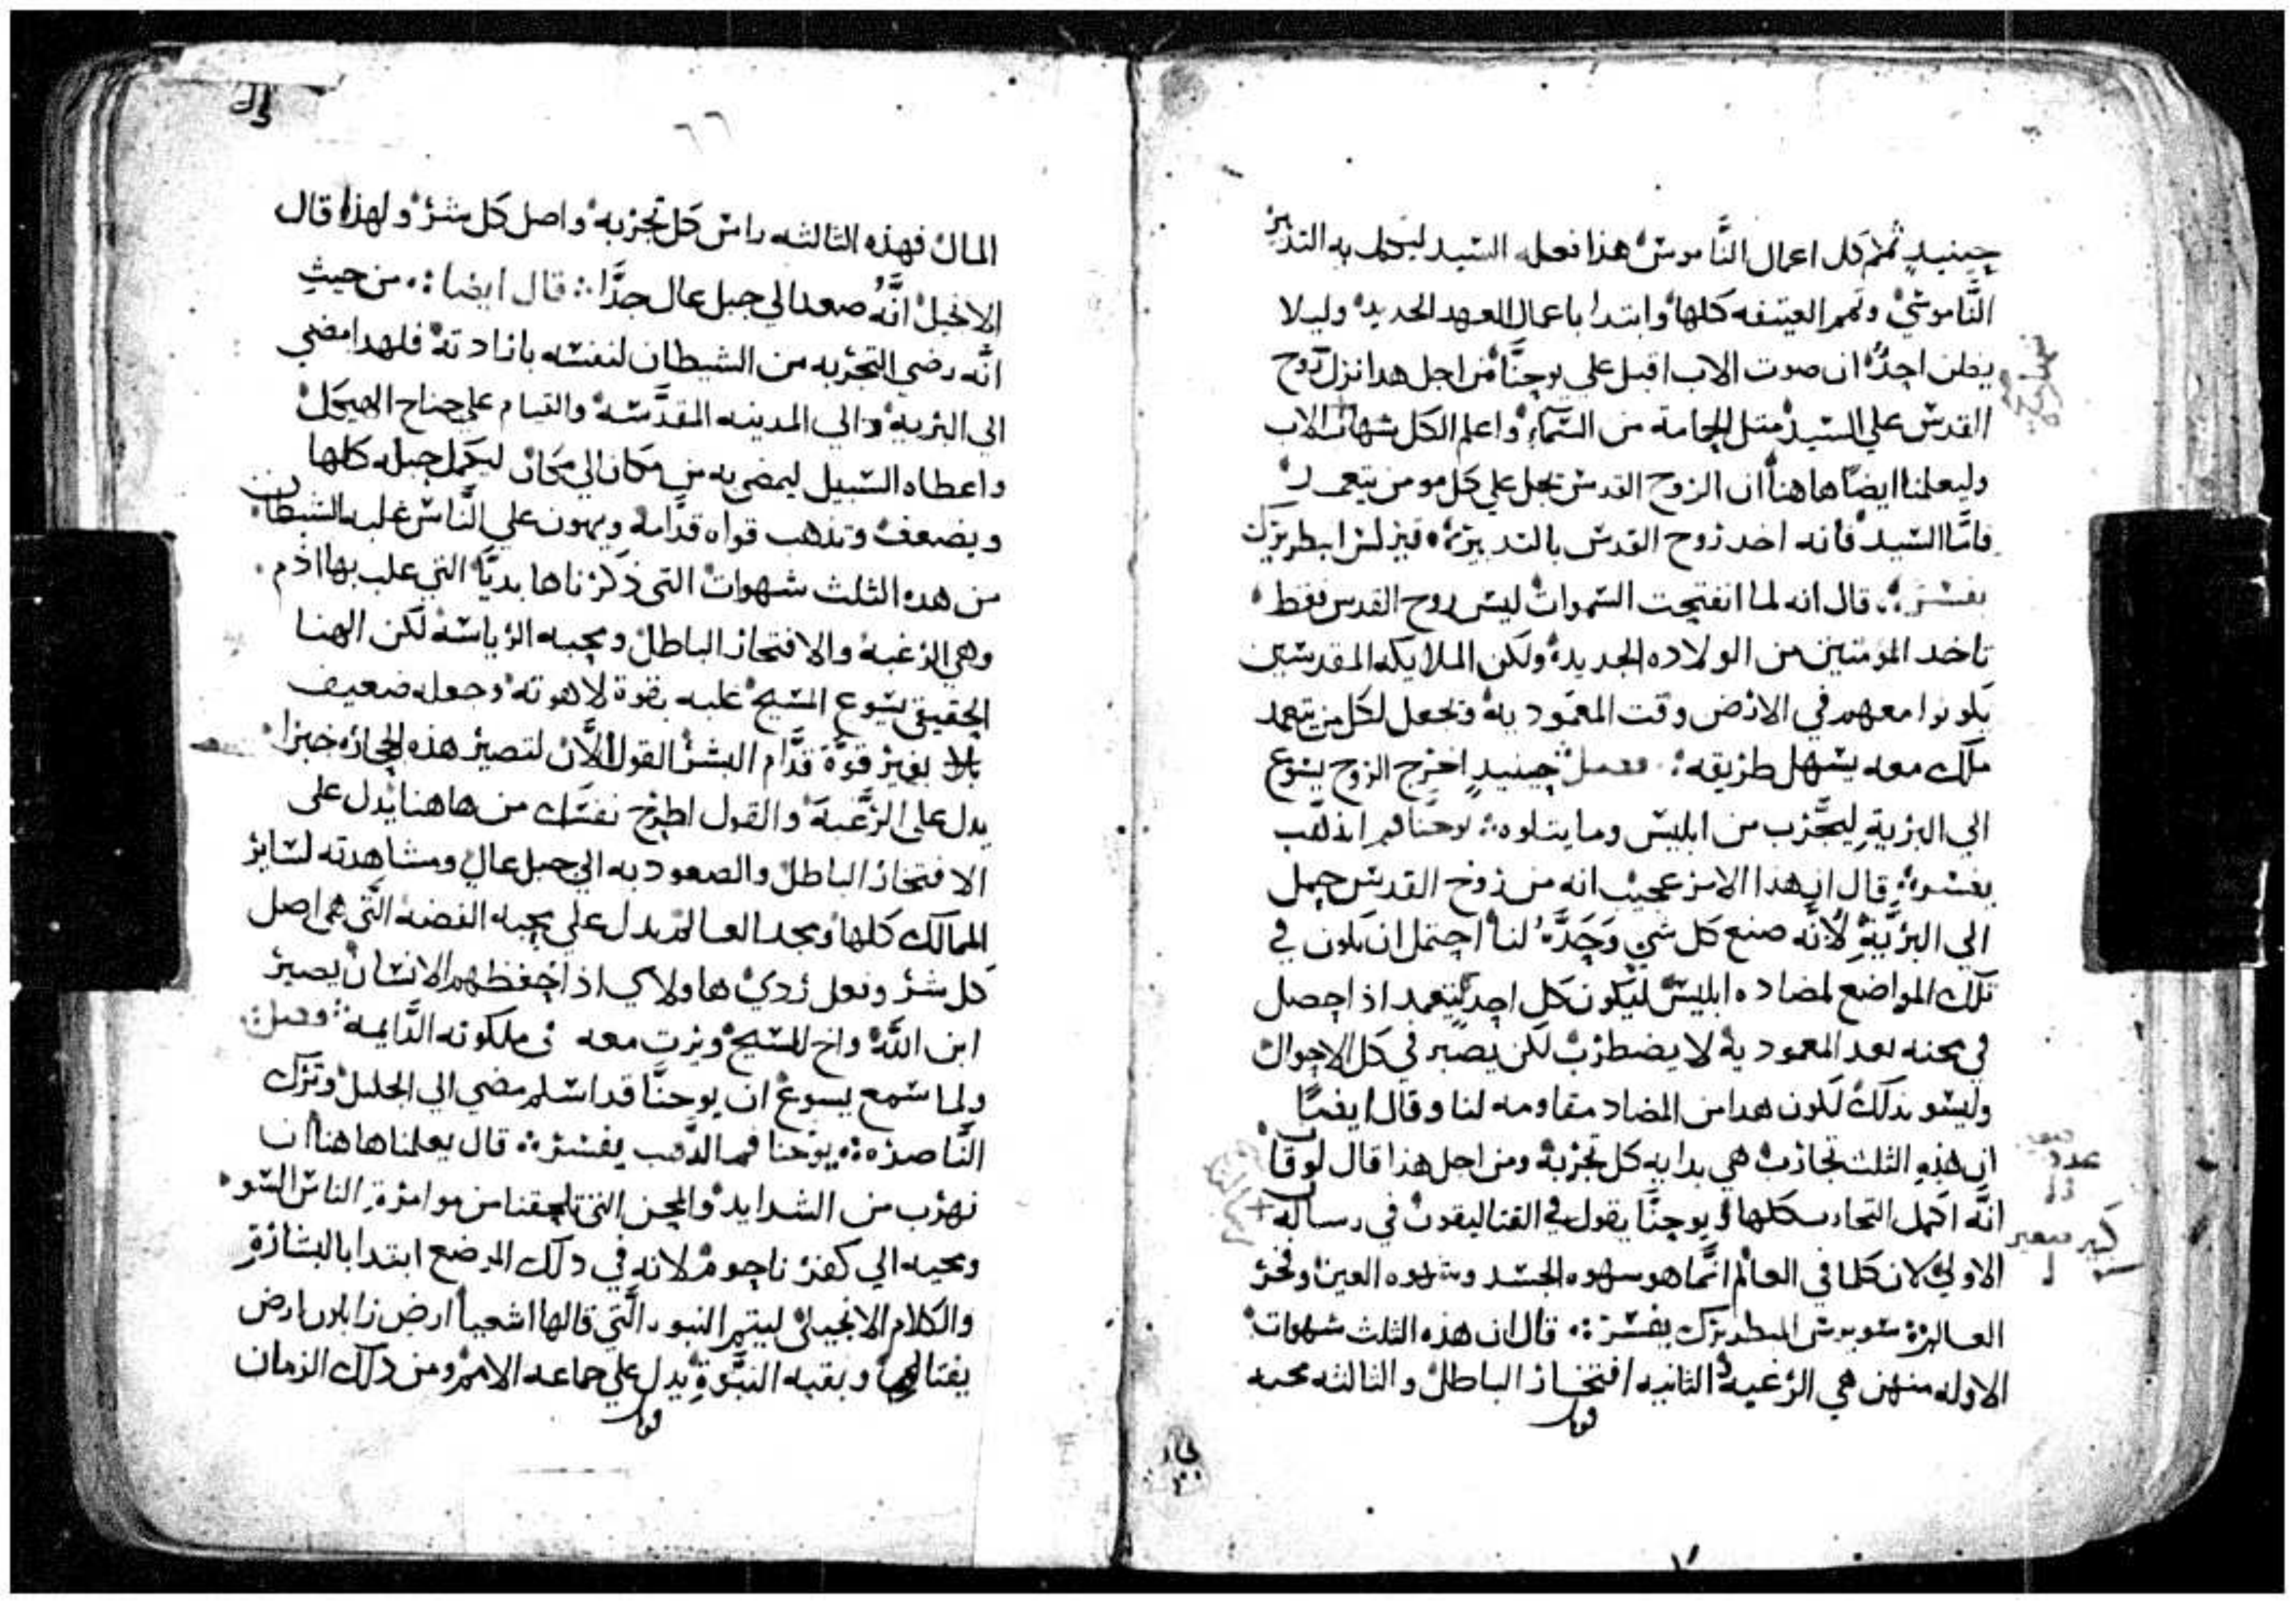 حينيدٍ تمم كل اعمال الناموس هذا فعله السيد ليكمل به التدبير
الناموسي وتمم العتيقه كلها وابتدا باعمال العهد الجديد وليلا
يظن احد ان صوت الاب اقبل علي يوحنا من اجل هدا نزل روح
القدس علي السيد متل الحمامة من السماء واعلم الكل شهادة الاب
وليعلمنا ايضا هاهنا ان الروح القدس تحل علي كل مومن يتعمد
فاما السيد فانه اخد روح القدس بالتدبير كيرلس ابطريرك
يفسر قال انه لما انفتحت السموات ليس روح القدس فقط
تاخد المومنين من الولاده الجديدة ولكن الملايكه المقدسين
يكونوا معهم في الارض وقت المعمودية وتجعل لكل من يتعمد
ملاك معه يسهل طريقه فصل حينيدٍ اخرج الروح يسوع
الي البرية ليجرب من ابليس وما يتلوه يوحنا فم الذهب
يفسر قال ان هذا الامر عجيب انه من روح القدس حمل
الي البرية لانه صنع كل شي وحده لنا احتمل ان يكون في
تلك المواضع لمضاده ابليس ليكون كل احد يتعمد اذا حصل
في محنه بعد المعمودية لا يضطرب لكن يصبر في كل الاحوال
وليس بدلك لكون هدا من المضاد مقاومه لنا وقال ايضا
ان هذه الثلث تجارب هي بدايه كل تجربة ومن اجل هذا قال لوقا
انه اكمل التجارب كلها ويوحنا يقول في القتاليقون في رساله
الاولي لان كلما في العالم انما هو شهوه الجسد وشهوه العين وفخر
العالم سويرس البطريرك يفسر قال ان هذه الثلث شهوات
الاوله منهن هي الرغبة الثانيه افتخار الباطل والثالثه محبه
قوبل
عدد
كبير صغير
٦٦
المال فهذه الثالثه راس كل تجربة واصل كل شر ولهذا قال
الانجيل انه صعد الي جبل عال جدا قال ايضا من حيث
انه رضي التجربه من الشيطان لنفسه بارادته فلهدا مضي
الي البرية والي المدينه المقدسه والقيام علي جناح الهيكل
واعطاه السبيل ليمضي به من مكان الي مكان ليكمل حيله كلها
ويضعف وتدهب قواه قدامه ويهون علي الناس غلبه الشيطان
من هده الثلث شهوات التي ذكرناها بديا التي غلب بها ادم
وهي الرغبة والافتخار الباطل ومحبه الرياسة لكن الهنا
الحقيقي يسوع المسيح غلبه بقوة لاهوته وجعله ضعيف
بغير قوة قدام البشر القول الان لتصير هذه الحجاره خبزا
يدل علي الرغبة والقول اطرح نفسك من هاهنا يدل علي
الافتخار الباطل والصعود به الي جبل عالٍ ومشاهدته لساير
الممالك كلها ومجد العالم يدل علي محبه الفضه التي هي اصل
كل شر وفعل ردي هاولاي اذا حفظهم الانسان يصير
ابن الله واخ للمسيح ويرت معه في ملكوته الدايمه فصل
ولما سمع يسوع ان يوحنا قد اسلم مضي الي الجليل وترك
الناصره يوحنا فم الدهب يفسر قال يعلمنا هاهنا ان
نهرب من الشدايد والمحن التي تلحقنا من موامرة الناس السو
ومجيه الي كفر ناحوم لانه في دلك الموضع ابتدا بالبشارة
والكلام الانجيلي ليتم النبوه التي قالها اشعيا ارض زابلون ارض
يفتاليم وبقيه النبوة يدل علي جماعه الامم ومن دلك الزمان
قوبل